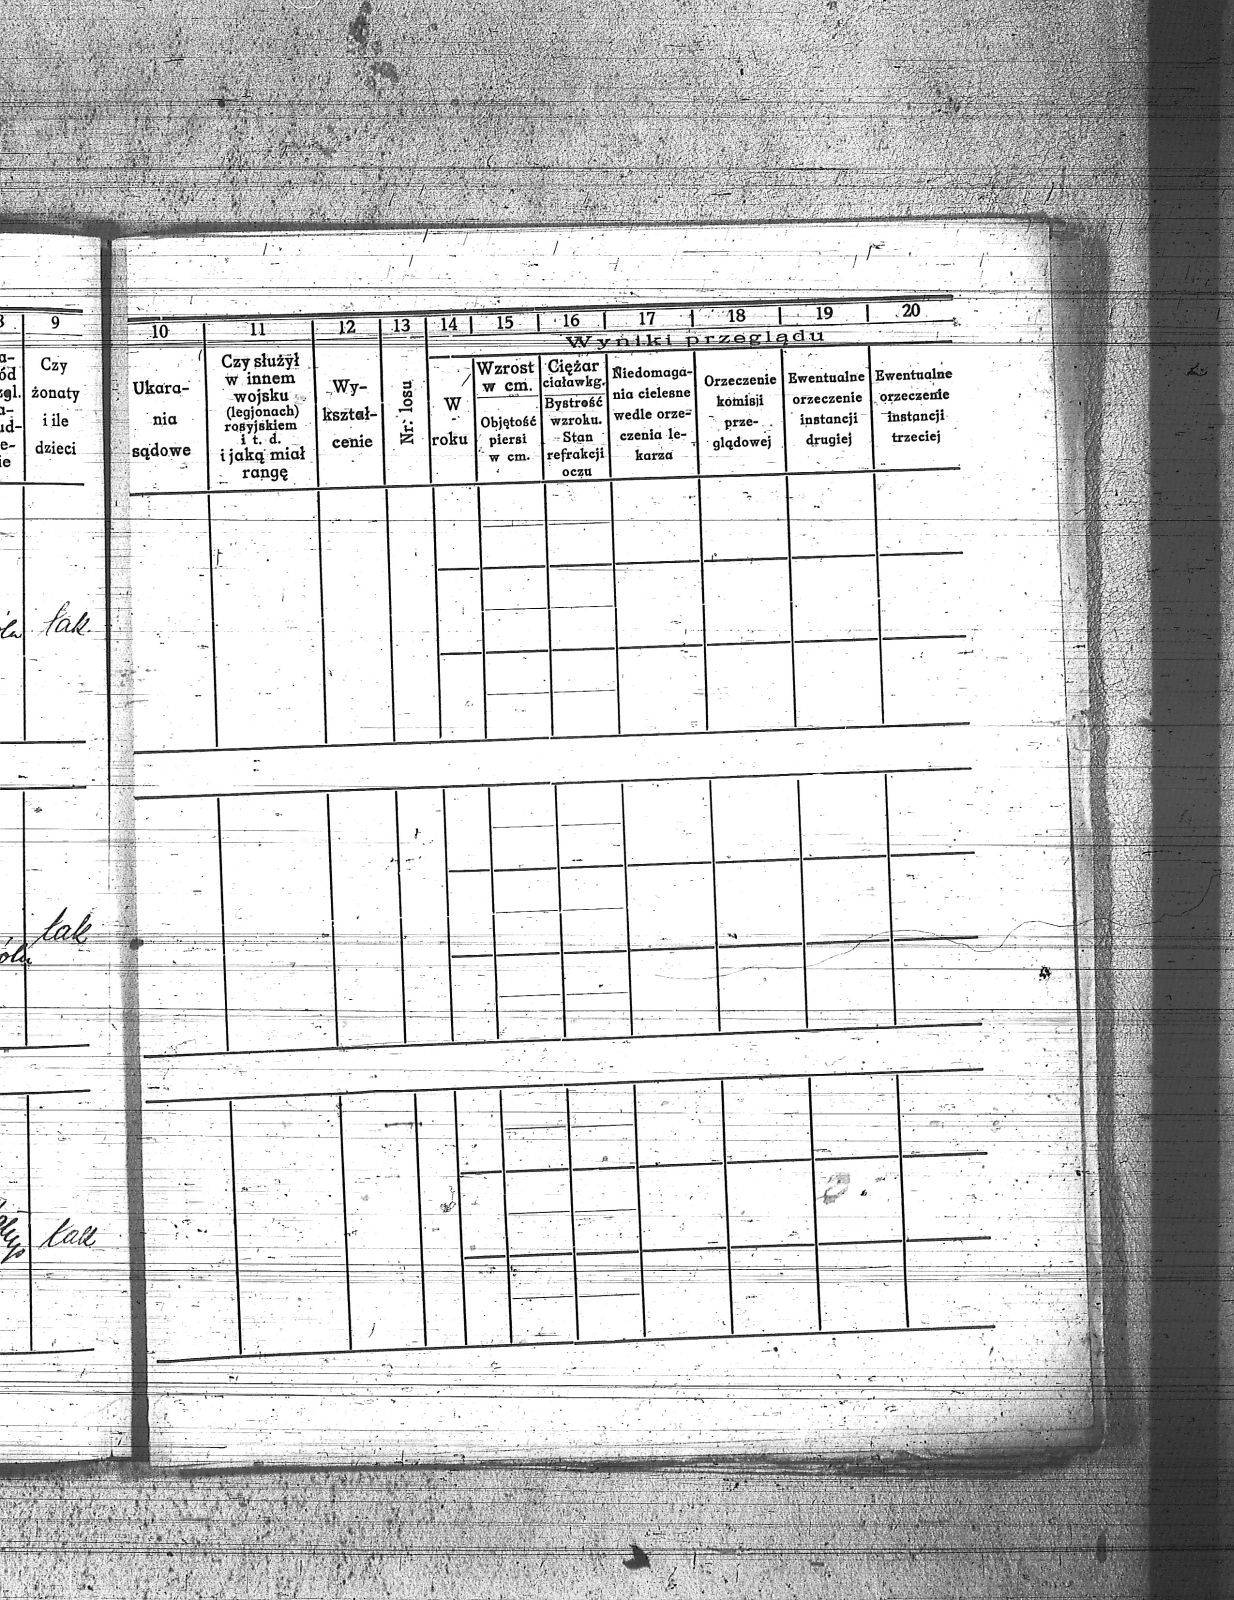 9
Czy
żonaty
i ile
dzieci
tak
tak
tak
10 11 12 13 14 15 16 17 18 19 20
Wyniki przeglądu
Ukara-
nia
sądowe
Czy służył
w innem
wojsku
(legjonach)
rosyjskiem
i t. d.
i jaką miał
rangę
Wy-
kształ-
cenie
Nr. losu
W
roku
Wzrost
w cm.
Objętość
piersi
w cm.
Ciężar
ciaławkg.
Bystrość
wzroku.
Stan
refrakcji
oczu
Niedomaga-
nia cielesne
wedle orze-
czenia le-
karza
Orzeczenie
komisji
prze-
glądowej
Ewentualne
orzeczenie
instancji
drugiej
Ewentualne
orzeczenie
instancji
trzeciej